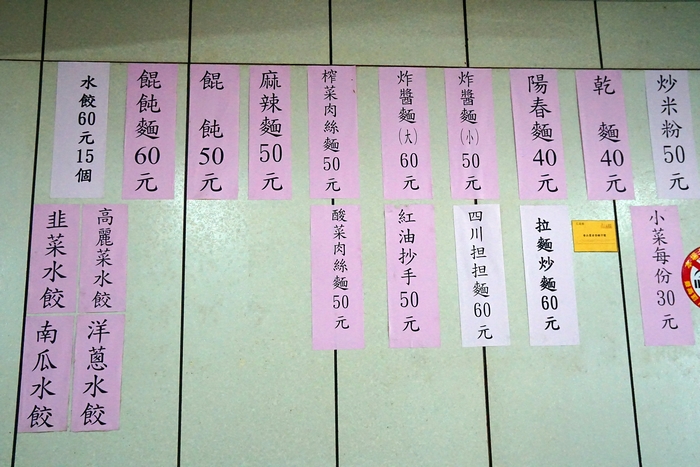 炒米粉50元
乾麵40元
陽春麵40元
炸醬麵(小)50元
炸醬麵(大)60元
榨菜肉絲麵50元
麻辣麵50元
餛飩50元
餛飩麵60元
水餃60元15個
小菜每份30元
拉麵炒麵60元
四川担担麵60元
紅油抄手50元
酸菜肉絲麵50元
高麗菜水餃
韭菜水餃
洋蔥水餃
南瓜水餃